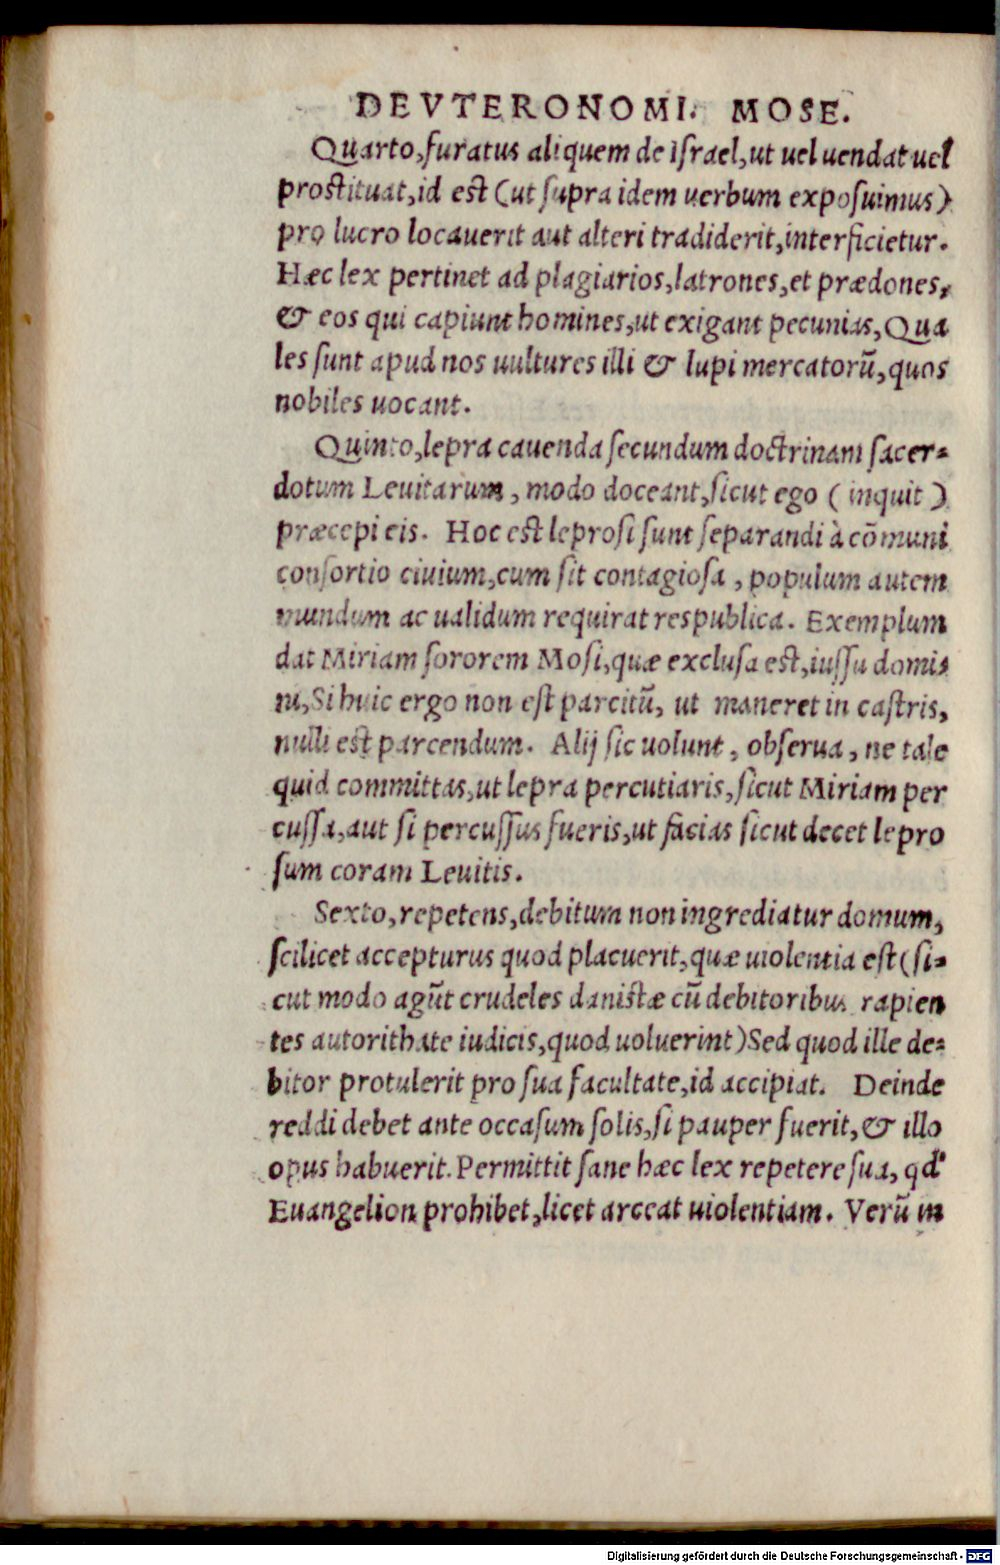 DEVTERONOMI. MOSE.
Quarto, furatus aliquem de Israel, ut uel uendat uel
prostituat, id est (ut supra idem uerbum exposuimus)
pro lucro locauerit aut alteri tradiderit, interficietur.
Hæc lex pertinet ad plagiarios, latrones, et prædones,
& eos qui capiunt homines, ut exigant pecunias, Qua
les sunt apud nos uultures illi & lupi mercatorū, quos
nobiles uocant.
Quinto, lepra cauenda secundum doctrinam sacer=
dotum Leuitarum, modo doceant, sicut ego (inquit)
præcepi eis. Hoc est leprosi sunt separandi à cōmuni
consortio ciuium, cum sit contagiosa, populum autem
mundum ac ualidum requirat respublica. Exemplum
dat Miriam sororem Mosi, quæ exclusa est, iussu domi=
ni, Si huic ergo non est parcitū, ut maneret in castris,
nulli est parcendum. Alij sic uolunt, obserua, ne tale
quid committas, ut lepra percutiaris, sicut Miriam per
cussa, aut si percussus fueris, ut facias sicut decet lepro
sum coram Leuitis.
Sexto, repetens, debitum non ingrediatur domum,
scilicet accepturus quod placuerit, quæ uiolentia est (si=
cut modo agūt crudeles danistæ cū debitoribus rapien
tes autorithate iudicis, quod uoluerint) Sed quod ille de=
bitor protulerit pro sua facultate, id accipiat. Deinde
reddi debet ante occasum solis, si pauper fuerit, & illo
opus habuerit. Permittit sane hæc lex repetere sua, qd'
Euangelion prohibet, licet arceat uiolentiam. Verū in
Digitalisierung gefördert durch die Deutsche Forschungsgemeinschaft - DFG